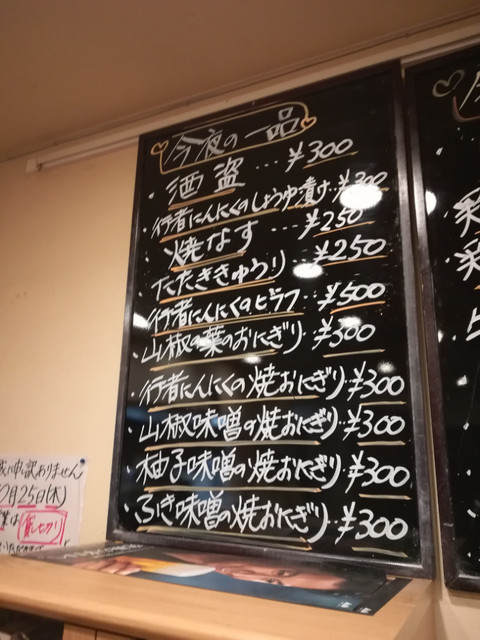 今夜の一品
・酒盗…¥300
・行者にんにくのしょうゆ漬け・¥300
・焼なす…¥250
・たたききゅうり…¥250
・行者にんにくのピラフ…¥500
・山椒の葉のおにぎり…¥300
・行者にんにくの焼おにぎり…¥300
・山椒味噌の焼おにぎり…¥300
・柚子味噌の焼おにぎり…¥300
・ふき味噌の焼おにぎり…¥300
に申し訳ありません
月25日(木)
業は貸し切り